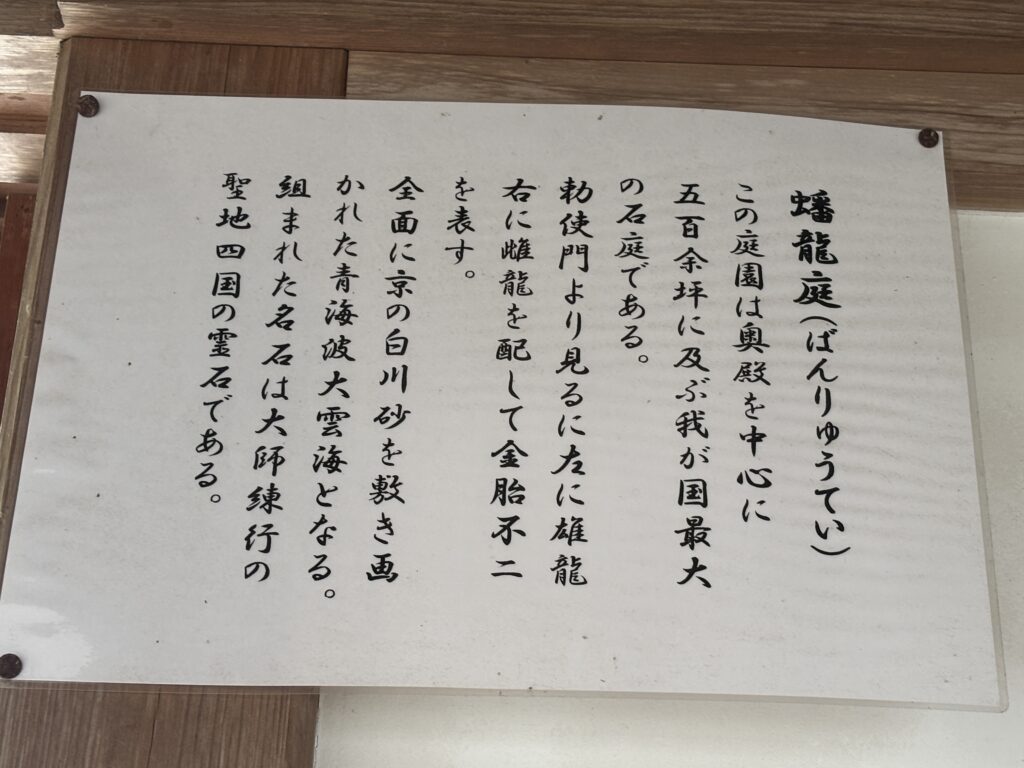 蟠龍庭(ばんりゅうてい)
この庭園は奥殿を中心に
五百余坪に及ぶ我が国最大
の石庭である。
勅使門より見るに左に雄龍
右に雌龍を配して金胎不二
を表す。
全面に京の白川砂を敷き画
かれた青海波大雲海となる。
組まれた名石は大師練行の
聖地四国の霊石である。